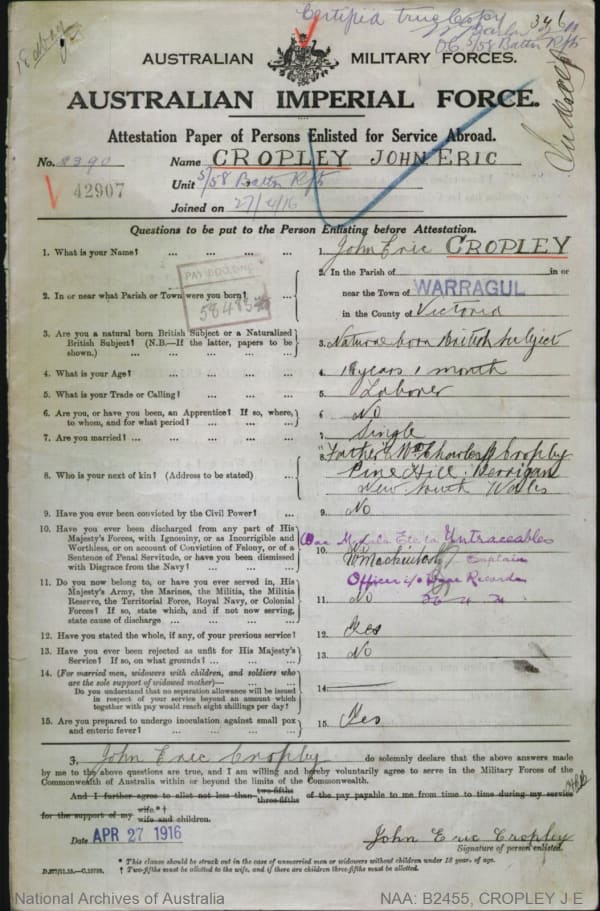 Certified true Copy
346
OC 5/58 Battn Rfts
AUSTRALIAN MILITARY FORCES.
AUSTRALIAN IMPERIAL FORCE.
Attestation Paper of Persons Enlisted for Service Abroad.
No. 2390 Name CROPLEY JOHN ERIC
42907
Unit 5/58 Battn Rfts
Joined on 27/4/16
Questions to be put to the Person Enlisting before Attestation.
1. What is your Name? ... ... ... ... 1. John Eric CROPLEY
2. In or near what Parish or Town were you born? ... 2. In the Parish of in or
near the Town of WARRAGUL
in the County of Victoria
3. Are you a natural born British Subject or a Naturalized
British Subject? (N.B.—If the latter, papers to be
shown.) ... ... ... ... 3. Natural born British Subject
4. What is your Age? ... ... ... ... 4. 18 years 1 month
5. What is your Trade or Calling? ... ... ... 5. Laborer
6. Are you, or have you been, an Apprentice? If so, where,
to whom, and for what period? ... ... ... 6. No
7. Are you married? ... ... ... ... 7. Single
8. Who is your next of kin? (Address to be stated) ... 8. Father Wm Charles Cropley
Pine Hill. Berrigan
New South Wales
9. Have you ever been convicted by the Civil Power? ... 9. No
10. Have you ever been discharged from any part of His
Majesty's Forces, with Ignominy, or as Incorrigible and
Worthless, or on account of Conviction of Felony, or of a
Sentence of Penal Servitude, or have you been dismissed
with Disgrace from the Navy? ... ... 10. No
Untraceable
Captain
Officer i/c Base Records
11. Do you now belong to, or have you ever served in, His
Majesty's Army, the Marines, the Militia, the Militia
Reserve, the Territorial Force, Royal Navy, or Colonial
Forces? If so, state which, and if not now serving,
state cause of discharge ... ... ... 11. No
12. Have you stated the whole, if any, of your previous service? 12. Yes
13. Have you ever been rejected as unfit for His Majesty's
Service? If so, on what grounds? ... ... 13. No
14. (For married men, widowers with children, and soldiers who
are the sole support of widowed mother)—
Do you understand that no separation allowance will be issued
in respect of your service beyond an amount which
together with pay would reach eight shillings per day? 14.
15. Are you prepared to undergo inoculation against small pox
and enteric fever? ... ... ... ... 15. Yes
I, John Eric Cropley do solemnly declare that the above answers made
by me to the above questions are true, and I am willing and hereby voluntarily agree to serve in the Military Forces of the
Commonwealth of Australia within or beyond the limits of the Commonwealth.
And I further agree to allot not less than two-fifths three-fifths of the pay payable to me from time to time during my service
for the support of my wife.*† wife and children.
Date APR 27 1916 John Eric Cropley
Signature of person enlisted.
* This clause should be struck out in the case of unmarried men or widowers without children under 18 years of age.
† Two-fifths must be allotted to the wife, and if there are children three-fifths must be allotted.
National Archives of Australia NAA: B2455, CROPLEY J E